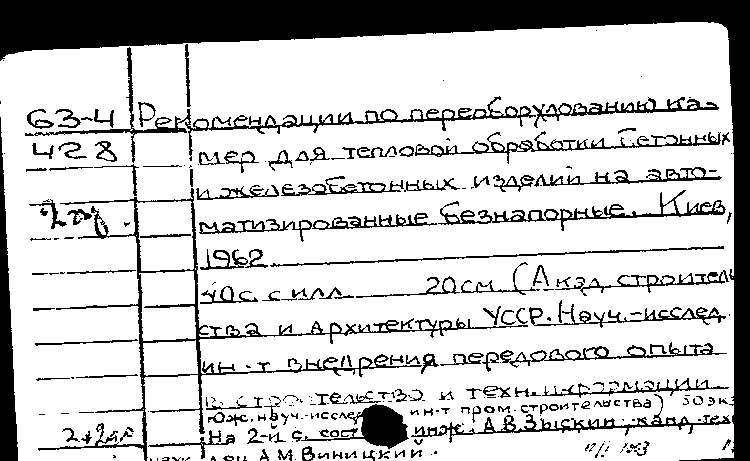 63-4 Рекомендации по переоборудованию ка-
428 мер для тепловой обработки бетонных
и железобетонных изделий на авто-
матизированные безнапорные. Киев,
1962
40с. с илл 20см (Акад. строитель
ства и архитектуры УССР. Науч.-исслед.
ин-т внедрения передового опыта
в строительство и техн. информации
Юж. науч.-исслед ин-т пром. строительства) 50 экз
На 2-й с. сост инж. А.В.Зыскин, канд. техн
наук А.М.Виницкий.